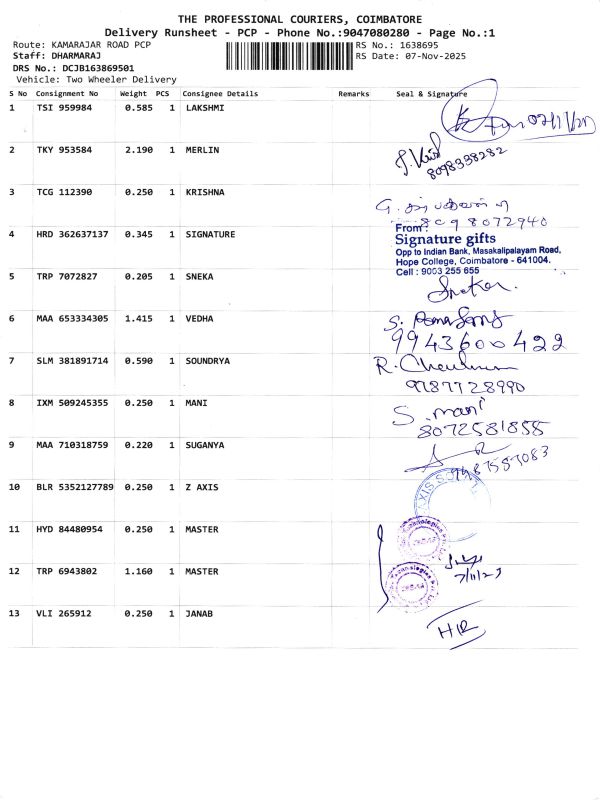 THE PROFESSIONAL COURIERS, COIMBATORE
Delivery Runsheet - PCP - Phone No.:9047080280 - Page No.:1
Route: KAMARAJAR ROAD PCP RS No.: 1638695
Staff: DHARMARAJ RS Date: 07-Nov-2025
DRS No.: DCJB163869501
Vehicle: Two Wheeler Delivery
S No Consignment No Weight PCS Consignee Details Remarks Seal & Signature
1 TSI 959984 0.585 1 LAKSHMI
2 TKY 953584 2.190 1 MERLIN
8098338282
3 TCG 112390 0.250 1 KRISHNA
8098072940
4 HRD 362637137 0.345 1 SIGNATURE
From:
Signature gifts
Opp to Indian Bank, Masakalipalayam Road,
Hope College, Coimbatore - 641004.
Cell : 9003 255 655
5 TRP 7072827 0.205 1 SNEKA
6 MAA 653334305 1.415 1 VEDHA
9943600422
7 SLM 381891714 0.590 1 SOUNDRYA
9787728990
8 IXM 509245355 0.250 1 MANI
S. mani
8072581858
9 MAA 710318759 0.220 1 SUGANYA
10 BLR 5352127789 0.250 1 Z AXIS
11 HYD 84480954 0.250 1 MASTER
12 TRP 6943802 1.160 1 MASTER
13 VLI 265912 0.250 1 JANAB